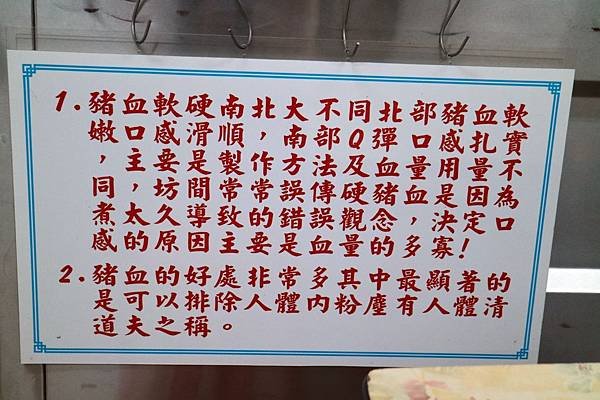 1.豬血軟硬南北大不同北部豬血軟
嫩口感滑順，南部Q彈口感扎實
，主要是製作方法及血量用量不
同，坊間常常誤傳硬豬血是因為
煮太久導致的錯誤觀念，決定口
感的原因主要是血量的多寡!
2.豬血的好處非常多其中最顯著的
是可以排除人體內粉塵有人體清
道夫之稱。